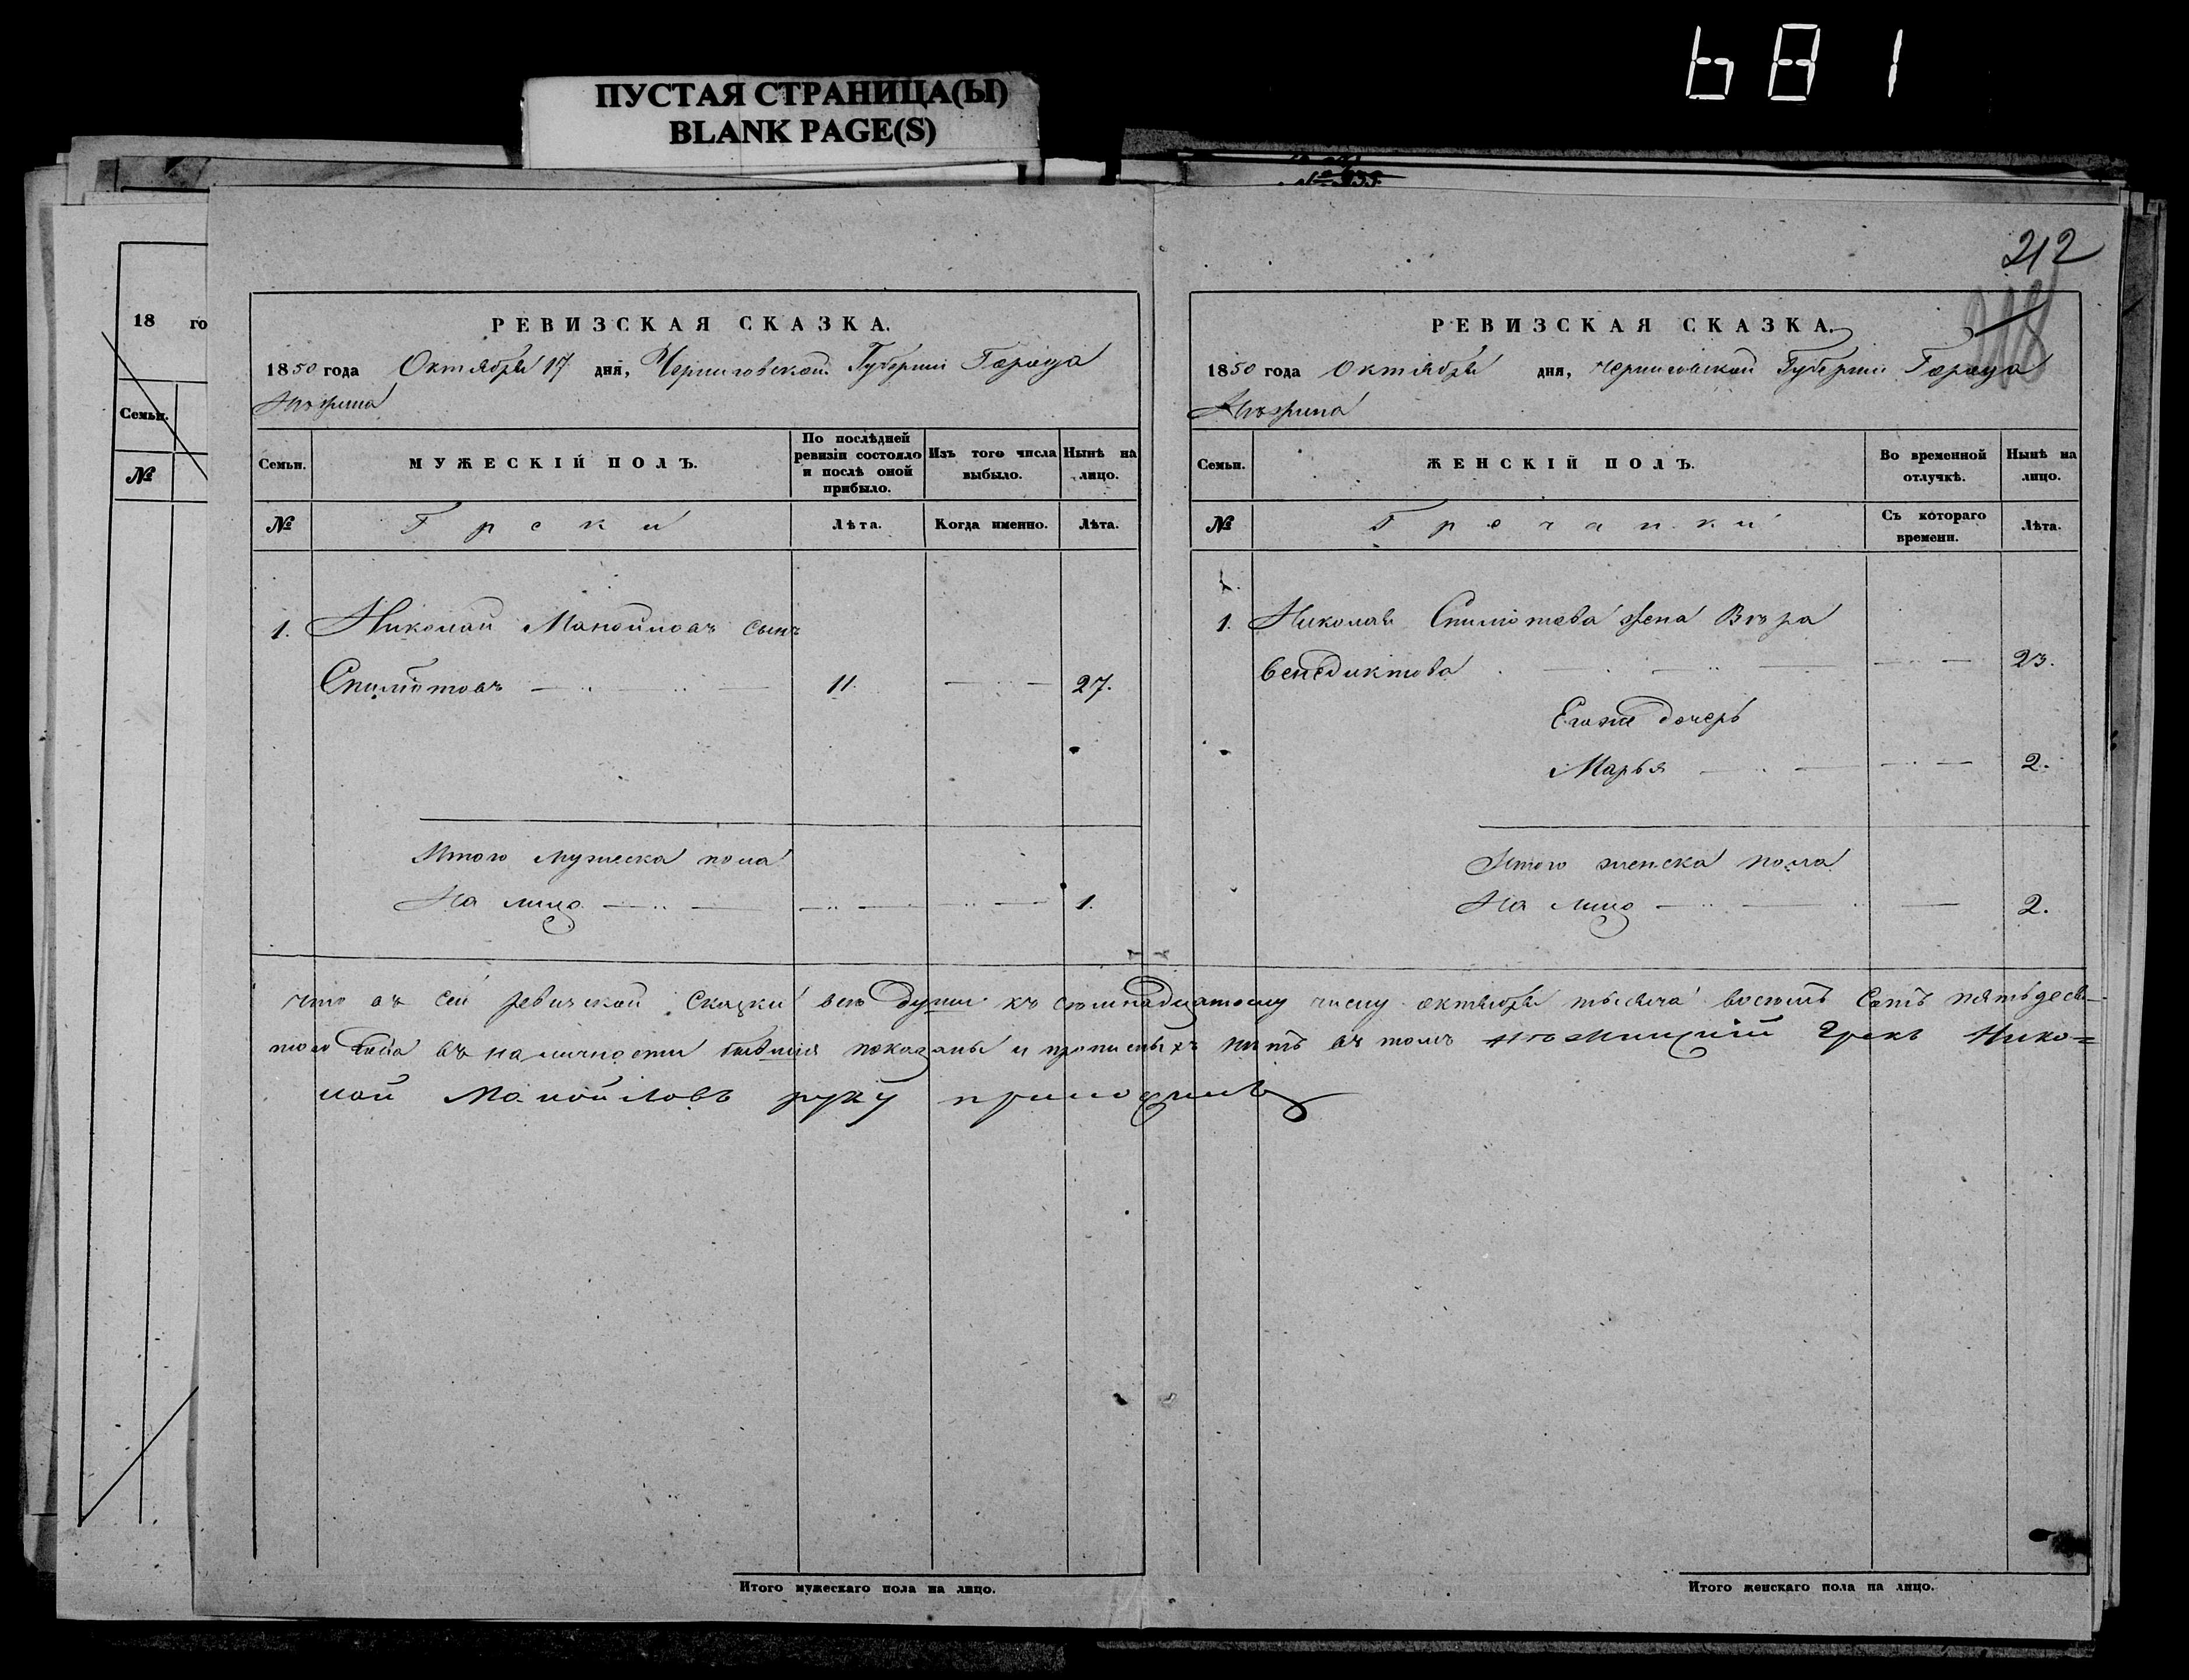 681
ПУСТАЯ СТРАНИЦА(Ы)
BLANK PAGE(S)
212
218
18 го
Семьи.
№
РЕВИЗСКАЯ СКАЗКА.
1850 года Октября 17 дня, Черниговской Губерніи Города
Нѣжина
Семьи.
МУЖЕСКІЙ ПОЛЪ.
По послѣдней ревизіи состояло и послѣ оной прибыло.
Изъ того числа выбыло.
Нынѣ на лицо.
№
Греки
Лѣта.
Когда именно.
Лѣта.
1. Николай Манойловъ сынъ
Спиліотовъ 11. 27.
Итого мужеска пола
На лицо 1.
РЕВИЗСКАЯ СКАЗКА.
1850 года Октября дня, Черниговской Губерніи Города
Нѣжина
Семьи.
ЖЕНСКІЙ ПОЛЪ.
Во временной отлучкѣ.
Нынѣ на лицо.
№
Гречанки
Съ котораго времени.
Лѣта.
1. Николая Спиліотова жена Вѣра
Венедиктова 23.
Его же дочерь
Марья 2.
Итого женска пола
На лицо 2.
что въ сей ревизской Сказки всѣ души къ семнадцатому числу октября тысяча восемь Сотъ пятьдеся-
того года въ наличности бывшія показаны и прописныхъ нѣтъ въ томъ Нѣжинскій Грекъ Нико=
лай Манойловъ руку приложилъ
Итого мужескаго пола на лицо.
Итого женскаго пола на лицо.